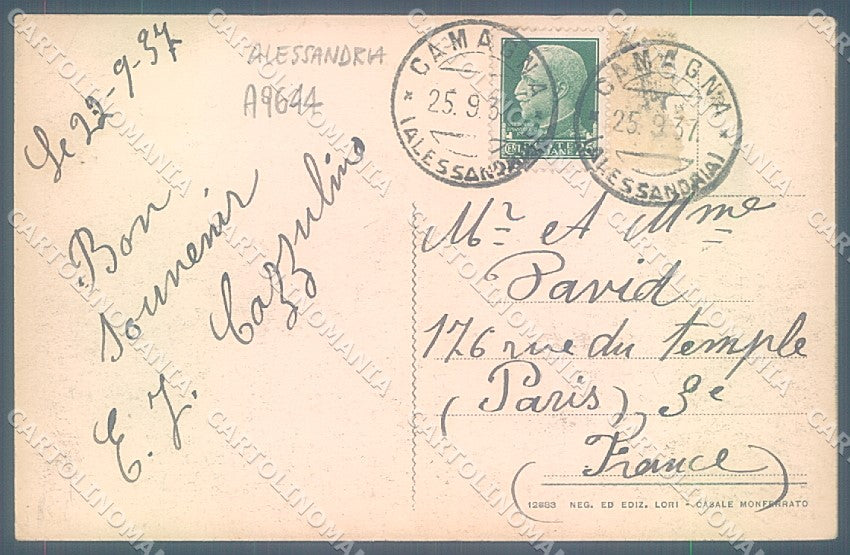 Le 22-9-37
ALESSANDRIA
A9644
Bon
souvenir
E. J. Cazzulino
CAMAGNA
25.9.37
(ALESSANDRIA)
CAMAGNA
25.9.37
(ALESSANDRIA)
Mr et Mme
David
176 rue du temple
(Paris) 3e
(France)
12883 NEG. ED EDIZ. LORI - CASALE MONFERRATO
CARTOLINOMANIA